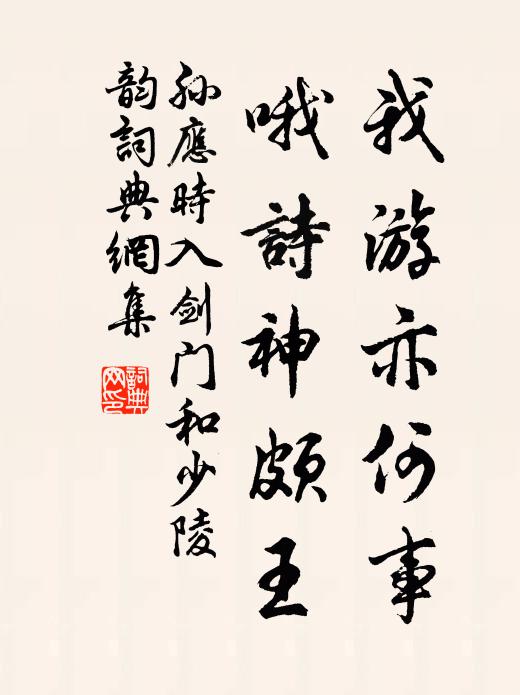 我游亦何事
哦詩神頗王
孙應時入剑门和少陵
韵詞典網集
詞典
网印